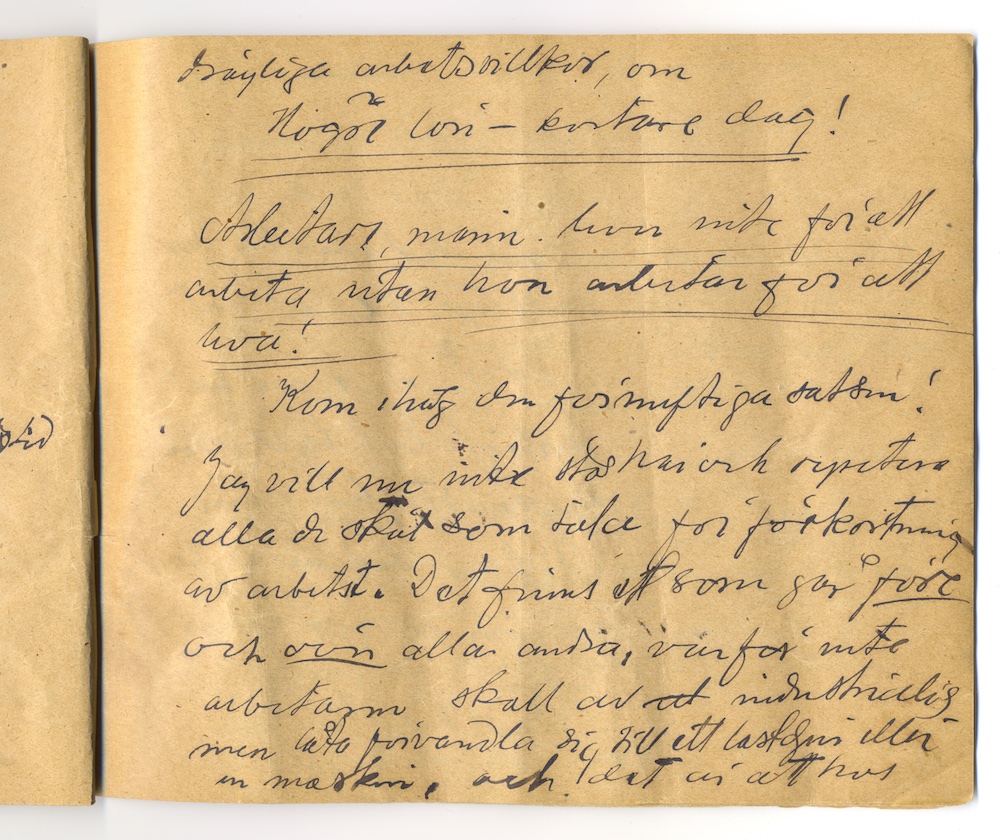 drägliga arbetsvillkor, om
Högre lön – kortare dag!
Arbetare, männ. lever inte för att
arbeta utan hon arbetar för att
leva!
Kom ihåg den förnuftiga satsen!
Jag vill nu inte stå här och repetera
alla de skäl som tala för förkortning
av arbetst. Det finns ett som går före
och över alla andra, varför inte
arbetarn skall av industrialig
men låta förvandla sig till ett lastdjur eller
en maskin, och! det är att hos